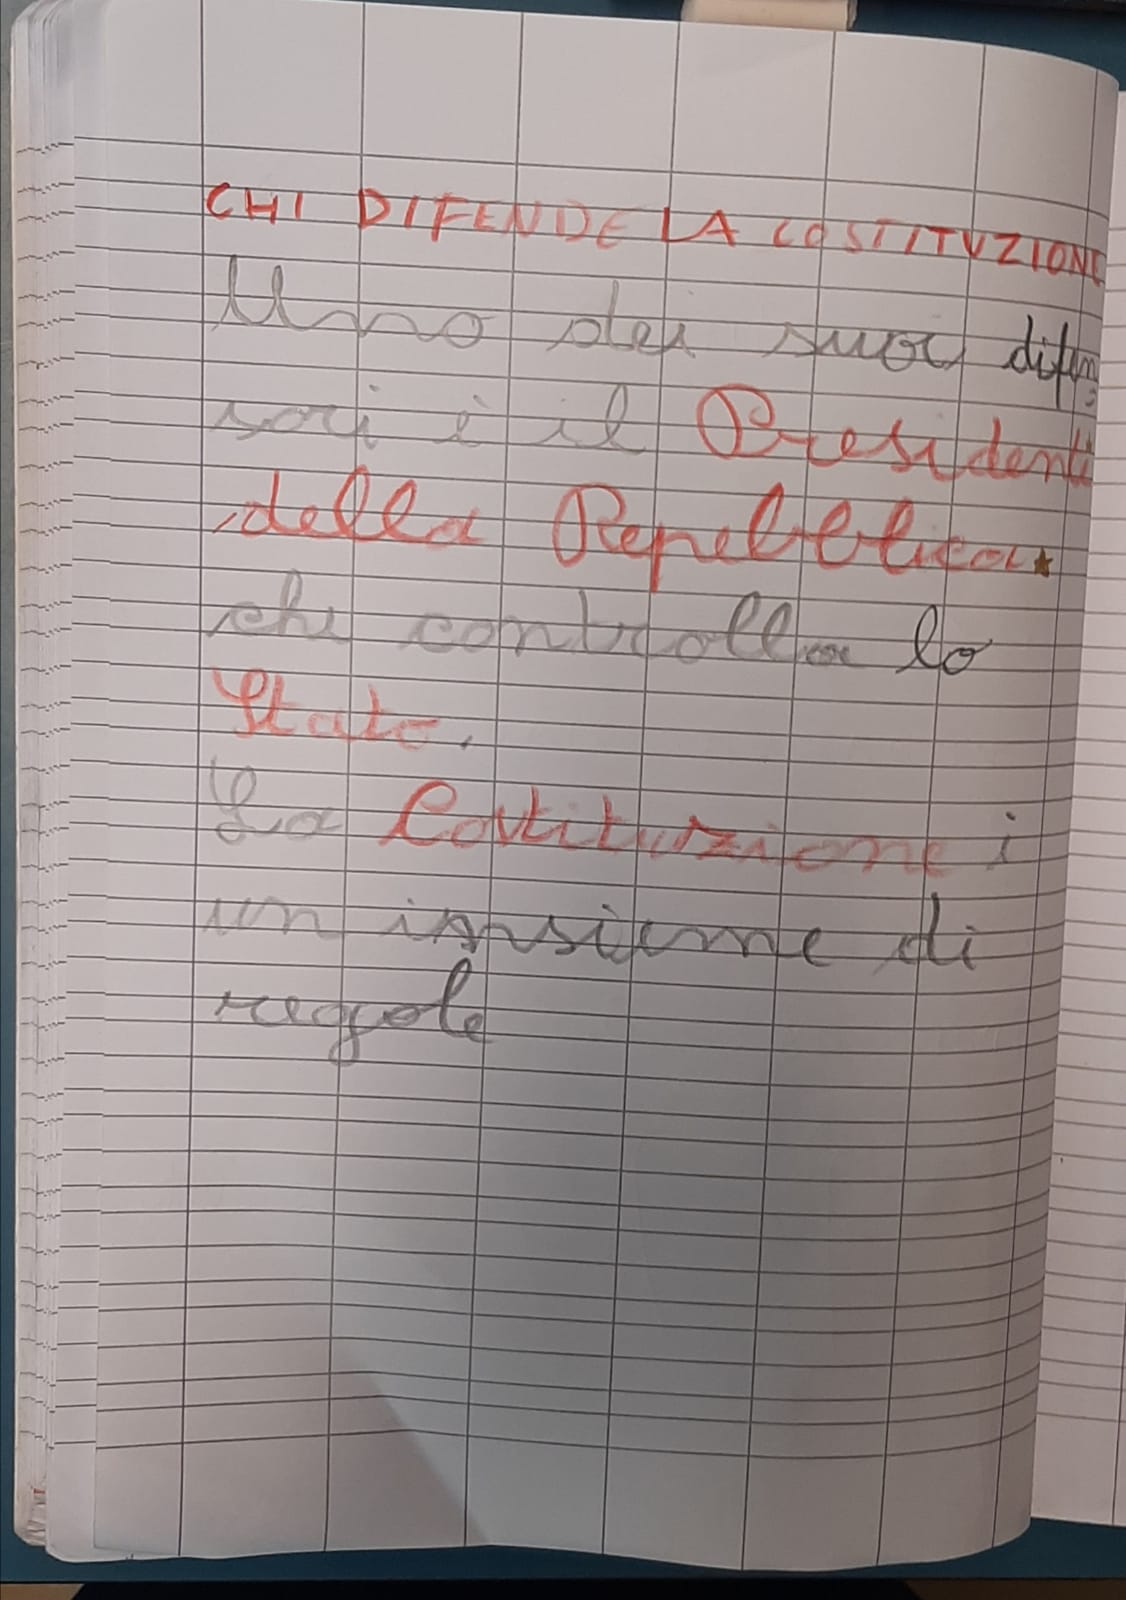 CHI DIFENDE LA COSTITUZIONE
Uno dei suoi difen
sori è il Presidente
della Repubblica
che controlla lo
Stato.
La Costituzione è
un insieme di
regole